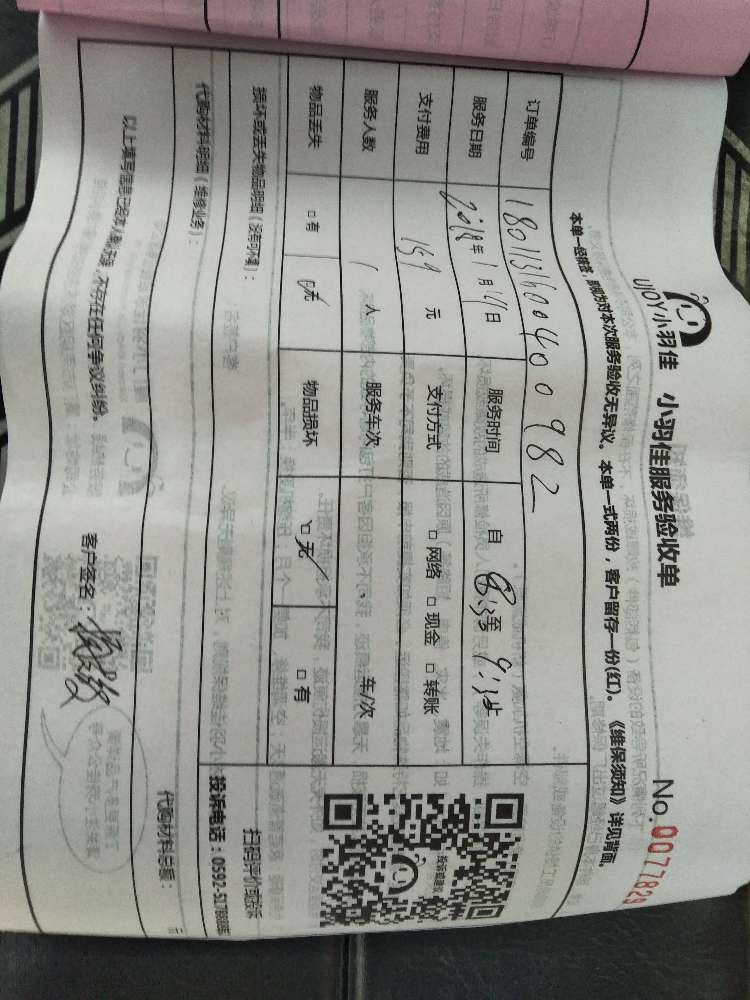 UJOY小羽佳 小羽佳服务验收单
No.0077829
本单一经签署,即视为对本次服务验收无异议。本单一式两份,客户留存一份(红)。《维保须知》详见背面。
订单编号 180113160400982
服务日期 2018年1月21日 服务时间 自8:30至9:30
支付费用 159元 支付方式 □网络 □现金 □转账
服务人数 1人 服务车次 车/次
物品丢失 □有 □无 物品损坏 □无 □有
损坏或丢失物品明细(没有可不填):
扫码评价或投诉
投诉电话:0592-5178886
代购材料明细(维修业务):
代购材料总额: 元
以上填写信息已经本人确认,不存在任何争议纠纷。
客户签名: